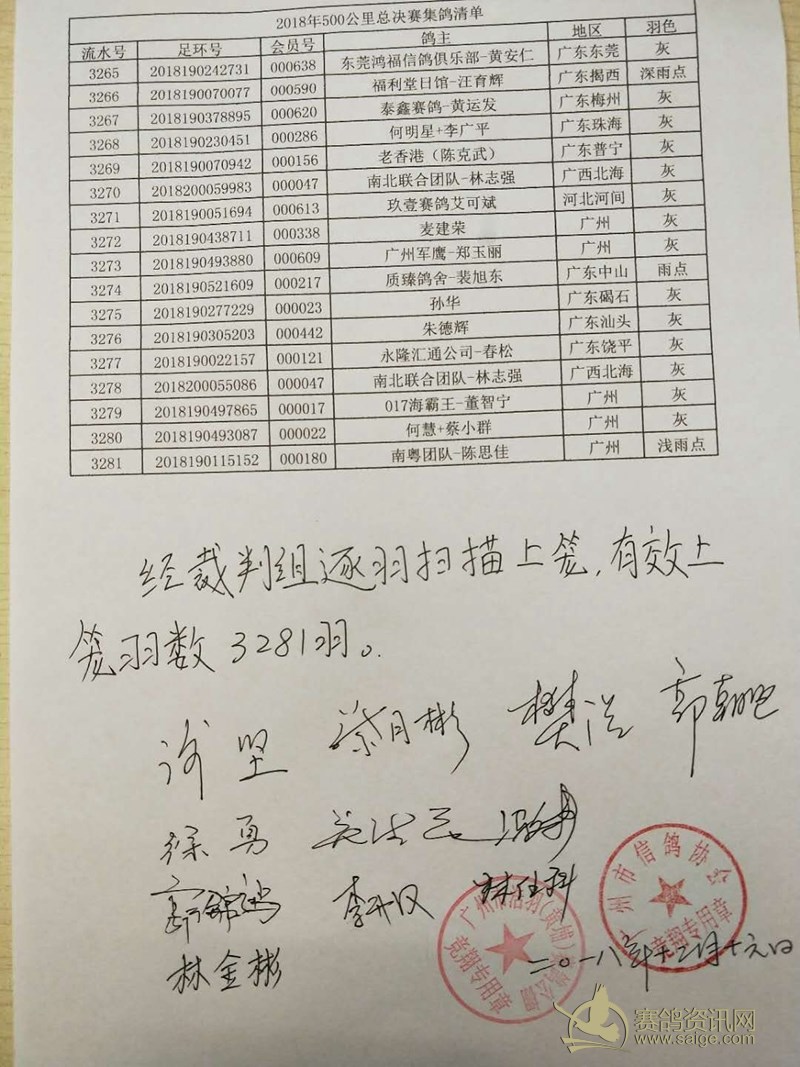 2018年500公里总决赛集鸽清单
流水号 足环号 会员号 鸽主 地区 羽色
3265 2018190242731 000638 东莞鸿福信鸽俱乐部-黄安仁 广东东莞 灰
3266 2018190070077 000590 福利堂日馆-汪育辉 广东揭西 深雨点
3267 2018190378895 000620 泰鑫赛鸽-黄运发 广东梅州 灰
3268 2018190230451 000286 何明星+李广平 广东珠海 灰
3269 2018190070942 000156 老香港（陈克武） 广东普宁 灰
3270 2018200059983 000047 南北联合团队-林志强 广西北海 灰
3271 2018190051694 000613 玖壹赛鸽艾可斌 河北河间 灰
3272 2018190438711 000338 麦建荣 广州 灰
3273 2018190493880 000609 广州军鹰-郑玉丽 广州 灰
3274 2018190521609 000217 质臻鸽舍-裴旭东 广东中山 雨点
3275 2018190277229 000023 孙华 广东碣石 灰
3276 2018190305203 000442 朱德辉 广东汕头 灰
3277 2018190022157 000121 永隆汇通公司-春松 广东饶平 灰
3278 2018200055086 000047 南北联合团队-林志强 广西北海 灰
3279 2018190497865 000017 017海霸王-董智宁 广州 灰
3280 2018190493087 000022 何慧+蔡小群 广州 灰
3281 2018190115152 000180 南粤团队-陈思佳 广州 浅雨点
经裁判组逐羽扫描上笼,有效上
笼羽数3281羽。
樊
徐勇
林金彬
广州市信鸽协会
竞翔专用章
竞翔专用章
二〇一八年十二月十六日
赛鸽资讯网
www.saige.com